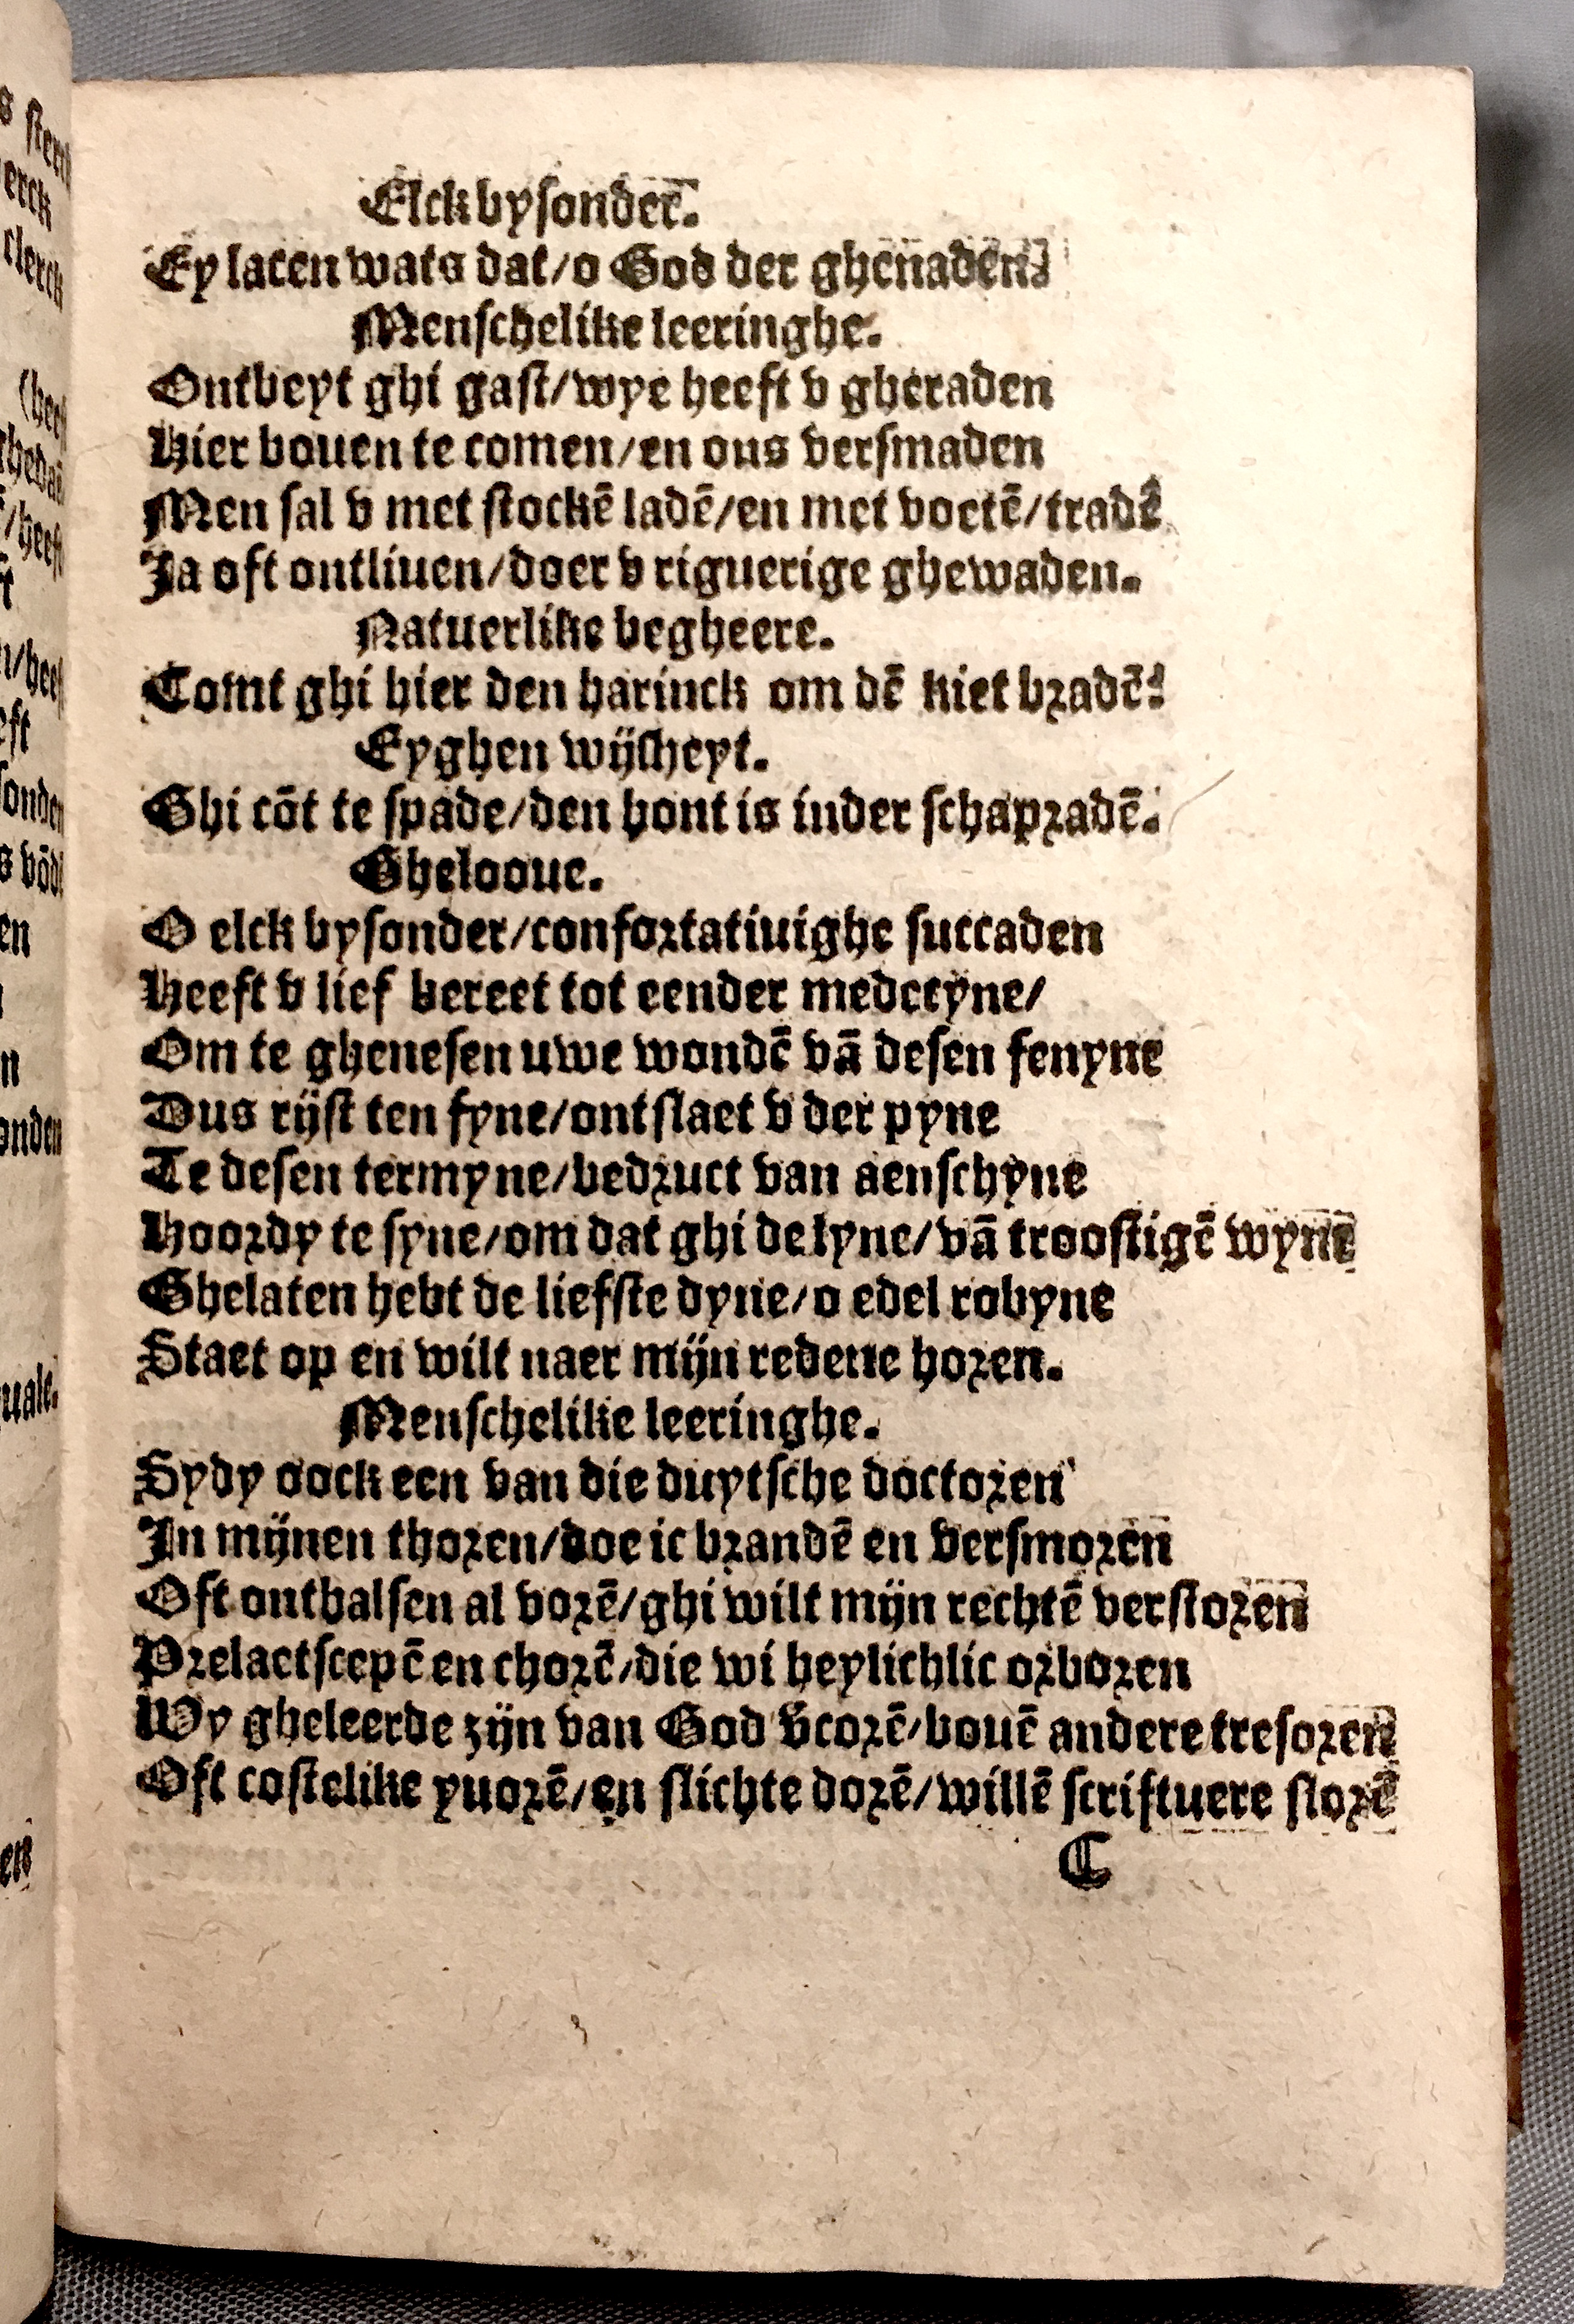 Elck bysonder.
Ey laten wats dat/o God der ghenaden.
Menschelike leeringhe.
Ontbeyt ghi gast/wye heeft v gheraden
Hier bouen te comen/en ons versmaden
Men sal v met stockē ladē/en met voetē/tradē
Ja oft ontliuen/doer v riguerige ghewaden.
Natuerlike begheere.
Comt ghi hier den harinck om dē kiet bradē?
Eyghen wijsheyt.
Ghi cōt te spade/den hont is inder schapradē.
Ghelooue.
O elck bysonder/confortatiuighe succaden
Heeft v lief bereet tot eender medecyne/
Om te ghenesen uwe wondē vā desen fenyne
Dus rijst ten fyne/ontslaet v der pyne
Te desen termyne/bedruct van aenschyne
Hoordy te syne/om dat ghi de lyne/vā troostigē wyne
Ghelaten hebt de liefste dyne/o edel robyne
Staet op en wilt naer mijn redene horen.
Menschelike leeringhe.
Sydy oock een van die duytsche doctoren
In mijnen thoren/doe ic brandē en versmoren
Oft onthalsen al vorē/ghi wilt mijn rechtē verstoren
Prelaetscepē en chorē/die wi heylichlic orboren
Wy gheleerde zijn van God v̄corē/bouē andere tresoren
Oft costelike yuorē/en slichte dorē/willē scriftuere slorē
C